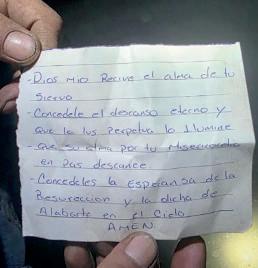 - Dios mio Recive el alma de tu
Siervo
- Concedele el descanso eterno y
que la lus Perpetua lo Ilumine
- que su alma por tu Misericordia
en Pas descance
- Concedeles la Esperansa de la
Resureccion y la dicha de
Alabarte en el Cielo
AMEN